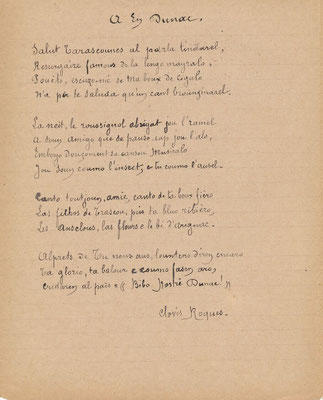 A En Dunac.
Salut Tarascounes al parla lindarel,
Ressurgaire famous de la lengo mayralo,
Pouèto, escuzo-me se ma boux de cigalo
N'a per te saluda qu'un cant
La nèit, le roussignol abrigat jou l'ramel
A soun amigo que de pauso sus jou l'alo,
Emboyo douçoment sa cansou musicalo
Jou soun coumo l'insect, e tu coumo l'ausel.
Canto toutjoun, amic, canto de ta boux fièro
Las filhos de Tarascou, pus ta bluo ribièro,
Les Auselous, las flous e le bi d'
Alprets de Tu nous aus, diran encaro
Ta glorio, ta balour e coumo fasen aro,
Cridaren al païs "Bibo Nostré Dunac!"
Clovis Roques.